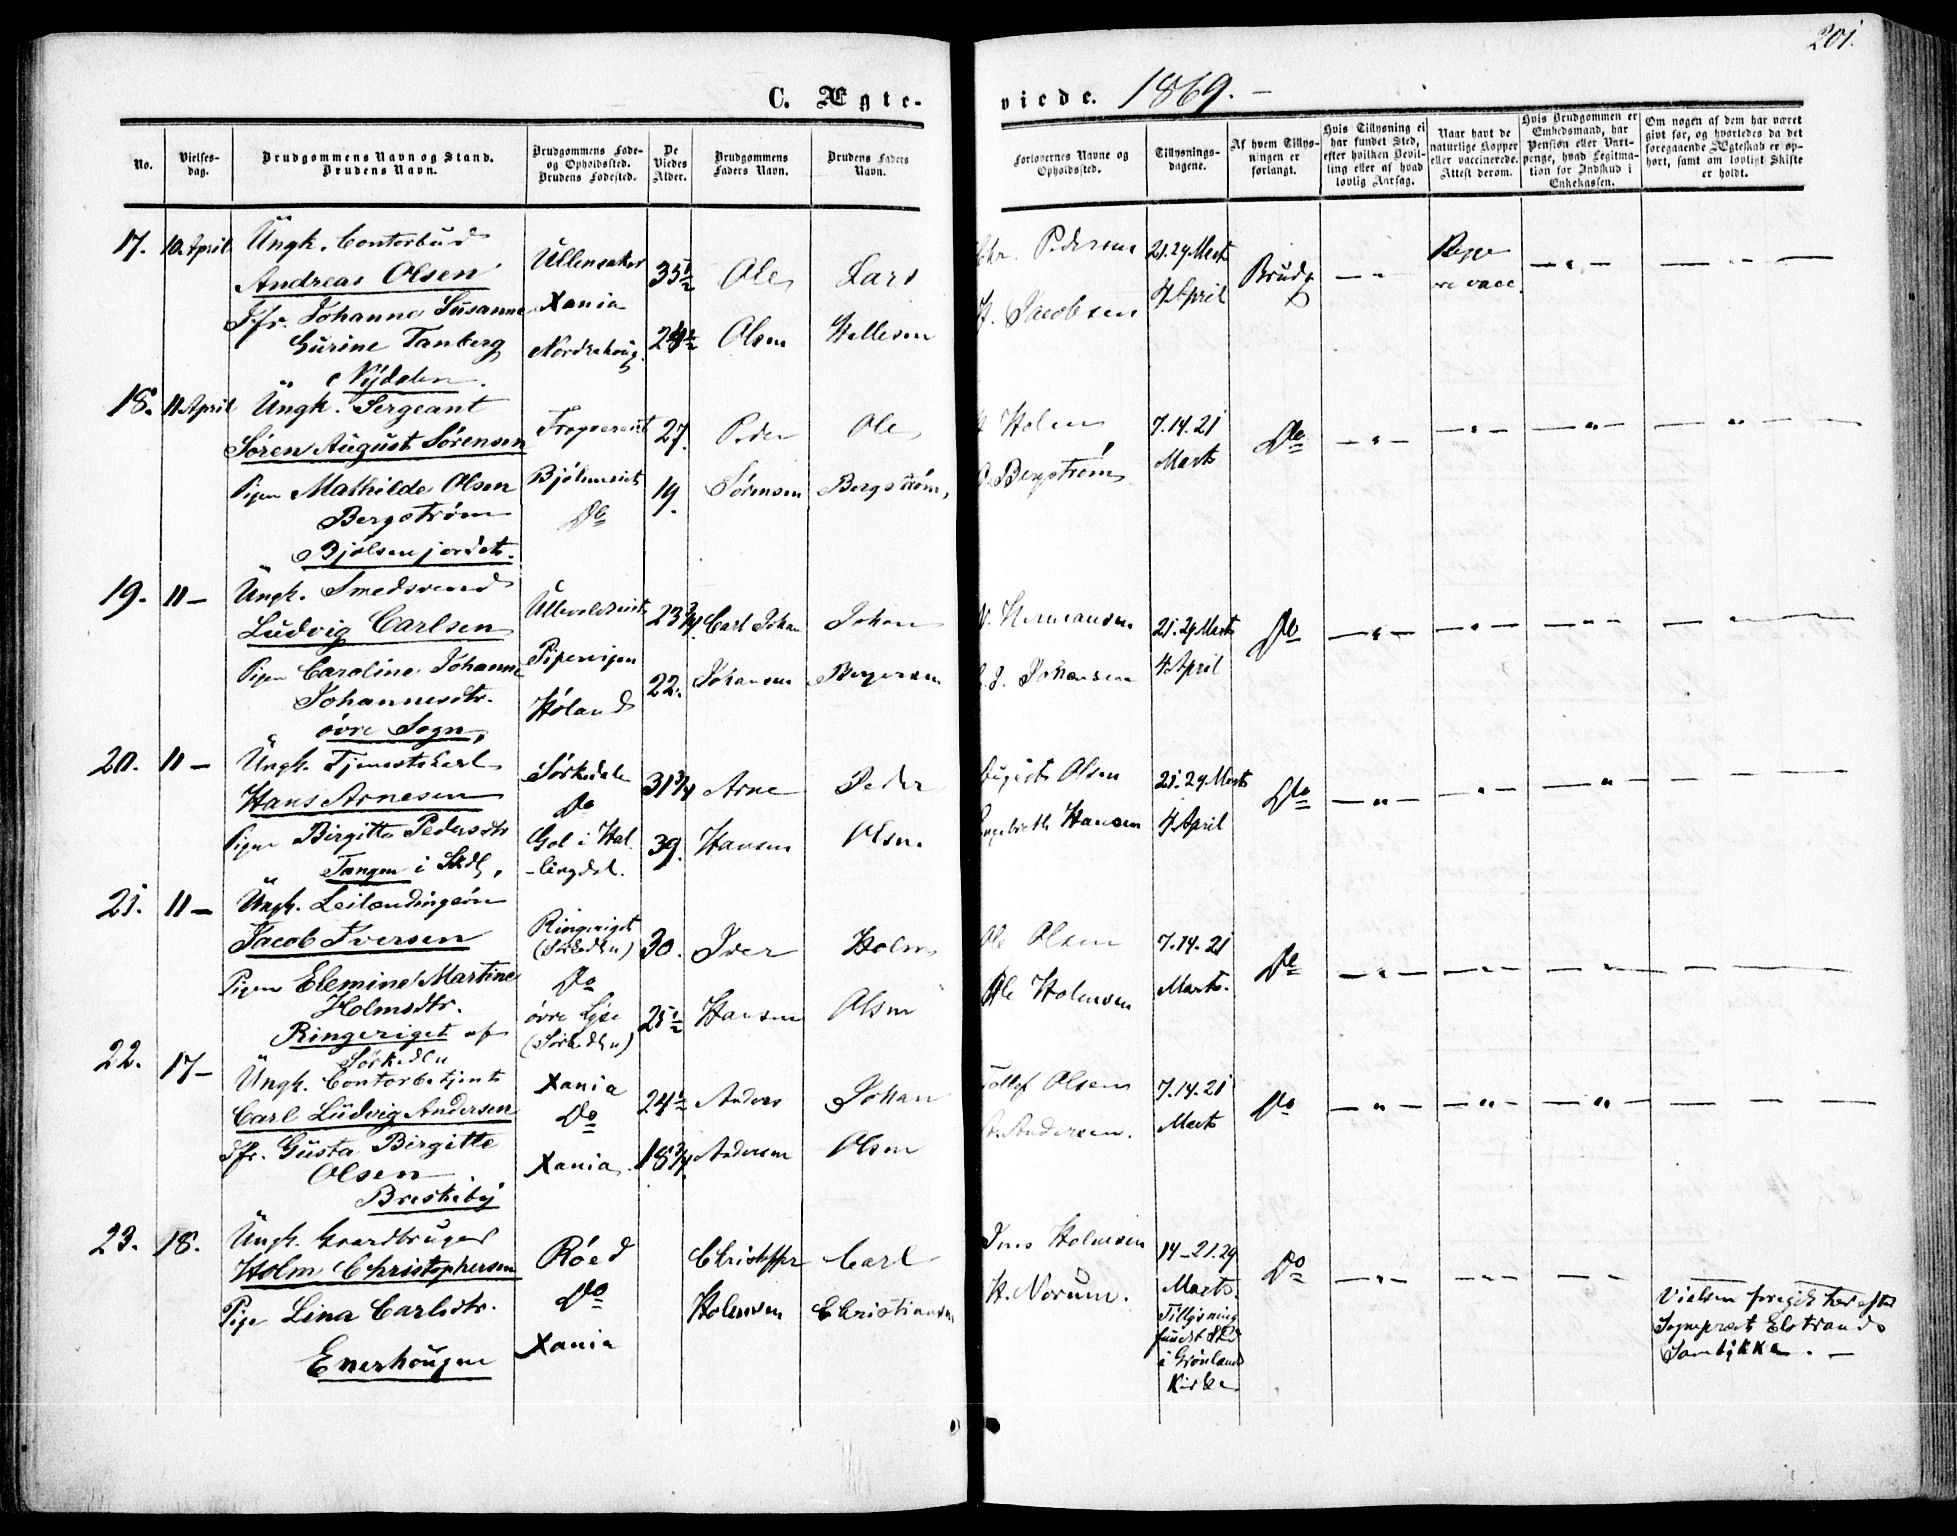 201.
C. Ægte-
viede. 1869. –
No.
Vielses-
dag.
Brudgommens Navn og Stand.
Brudens Navn.
Brudgommens Føde-
og Opholdssted.
Brudens Fødested.
De
Viedes
Alder.
Brudgommens
Faders Navn.
Brudens Faders
Navn.
Forlovernes Navne og
Opholdssted.
Tillysnings-
dagene.
Af hvem Tillys-
ningen er
forlangt.
Hvis Tillysning ei
har fundet Sted,
efter hvilken Bevil-
ling eller af hvad
lovlig Aarsag.
Naar havt de
naturlige Kopper
eller vaccinerede.
Attest derom.
Hvis Brudgommen er
Embedsmand, har
Pension eller Vart-
penge, hvad Legitima-
tion for Indskud i
Enkekassen.
Om nogen af dem har været
givt før, og hvorledes da det
foregaaende Ægteskab er op-
hørt, samt om lovligt Skifte
er holdt.
17. 10. April Ungk. Contorbud
Andreas Olsen
Jfr. Johanne Susanne
Gurine Tanberg
Nydalen.
Ullensaker
Xania
Nordrehoug.
35½
24½
Ole
Olsen
Lars
Hellesen
Chr. Pedersen
H. Jacobsen
21. 29 Marts
4 April
Brudg
vacc.
18. 11 April Ungk. Sergeant
Søren August Sørensen
Pigen Mathilde Olsen
Bergstrøm
Bjølsenjordet.
Do
27.
19.
Peder
Sørensen
Ole
Bergstrøm,
Holm
Bergstrøm
7. 14. 21
Marts
Do
19. 11 – Ungk. Smedsvend
Ludvig Carlsen
Pigen Caroline Johanne
Johannesdtr.
øvre Sogn,
Pipervigen
Høland
23¾
22.
Carl Johan
Johansen
Johan
Bergersen
Hermansen
J. Johansen
21. 29 Marts
4 April
Do
20. 11 – Ungk. Tjenestekarl
Hans Arnesen
Pigen Birgitte Pedersdtr
Tangen i Skdl,
Sørkedalen
Do
Gol i Hal-
lingdal.
31¾
39.
Arne
Hansen
Peder
Olsen
August Olsen
Engebreth Hansen
21. 29 Marts
4 April
Do
21. 11 – Ungk. Leilændingsøn
Jacob Iversen
Pigen Elemine Martine
Holmsdtr.
Ringeriget af
Sørkedln
Ringeriget
(Sørkedln)
Do
øvre Lyse
(Sørkedln)
30.
25½
Iver
Hansen
Holm
Olsen
Ole Olsen
Ole Holmsen
7. 14. 21
Marts.
Do
22. 17 – Ungk. Contorbetjent
Carl Ludvig Andersen
Jfr. Gusta Birgitte
Olsen
Briskeby
Xania
Do
Xania
24½
18¾
Anders
Andersen
Johan
Olsen
Tollef Olsen
A. Andersen.
7. 14. 21
Marts
Do
23. 18. Ungk. Gaardbruger
Holm Christophersen
Pige Lina Carlsdtr.
Enerhougen
Røed
Do
Xania
Christoffer
Holmsen
Carl
Christiansen
Jens Holmsen
H. Norum.
14 – 21. 29
Marts.
Tillysning
fundet Sted
i Grønlands
Kirke
Do
Vielsen foregik her efter
Sognepræst Elstrands
Samtykke. –